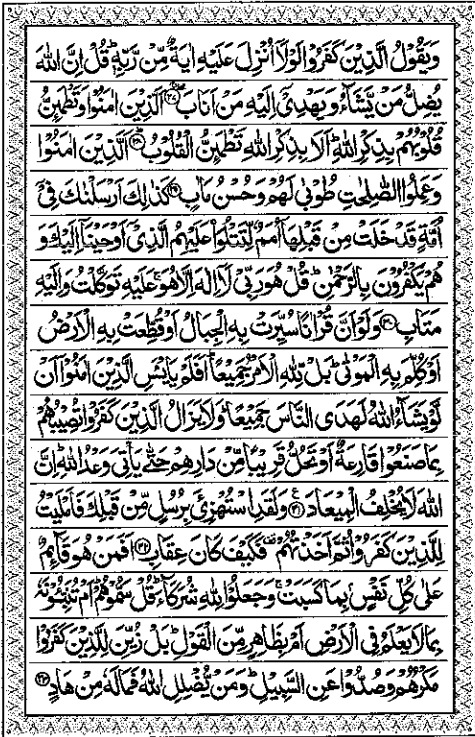 وَيَقُوْلُ الَّذِيْنَ كَفَرُوْا لَوْلَاۤ اُنْزِلَ عَلَيْهِ اٰيَةٌ مِّنْ رَّبِّهٖ ؕ قُلْ اِنَّ اللّٰهَ
يُضِلُّ مَنْ يَّشَآءُ وَيَهْدِيْۤ اِلَيْهِ مَنْ اَنَابَ ۖ ۚ ﴿۲۷﴾ اَلَّذِيْنَ اٰمَنُوْا وَتَطْمَىِٕنُّ
قُلُوْبُهُمْ بِذِكْرِ اللّٰهِ ؕ اَلَا بِذِكْرِ اللّٰهِ تَطْمَىِٕنُّ الْقُلُوْبُ ؕ ﴿۲۸﴾ اَلَّذِيْنَ اٰمَنُوْا
وَعَمِلُوا الصّٰلِحٰتِ طُوْبٰى لَهُمْ وَحُسْنُ مَاٰبٍ ﴿۲۹﴾ كَذٰلِكَ اَرْسَلْنٰكَ فِيْۤ
اُمَّةٍ قَدْ خَلَتْ مِنْ قَبْلِهَاۤ اُمَمٌ لِّتَتْلُوَا۟ عَلَيْهِمُ الَّذِيْۤ اَوْحَيْنَاۤ اِلَيْكَ وَ
هُمْ يَكْفُرُوْنَ بِالرَّحْمٰنِ ؕ قُلْ هُوَ رَبِّيْ لَاۤ اِلٰهَ اِلَّا هُوَ ۚ عَلَيْهِ تَوَكَّلْتُ وَاِلَيْهِ
مَتَابِ ﴿۳۰﴾ وَلَوْ اَنَّ قُرْاٰنًا سُيِّرَتْ بِهِ الْجِبَالُ اَوْ قُطِّعَتْ بِهِ الْاَرْضُ
اَوْ كُلِّمَ بِهِ الْمَوْتٰى ؕ بَلْ لِّلّٰهِ الْاَمْرُ جَمِيْعًا ؕ اَفَلَمْ يَايْـَٔسِ الَّذِيْنَ اٰمَنُوْۤا اَنْ
لَّوْ يَشَآءُ اللّٰهُ لَهَدَى النَّاسَ جَمِيْعًا ؕ وَلَا يَزَالُ الَّذِيْنَ كَفَرُوْا تُصِيْبُهُمْ
بِمَا صَنَعُوْا قَارِعَةٌ اَوْ تَحُلُّ قَرِيْبًا مِّنْ دَارِهِمْ حَتّٰى يَاْتِيَ وَعْدُ اللّٰهِ ؕ اِنَّ
اللّٰهَ لَا يُخْلِفُ الْمِيْعَادَ ﴿۳۱﴾ ع وَلَقَدِ اسْتُهْزِئَ بِرُسُلٍ مِّنْ قَبْلِكَ فَاَمْلَيْتُ
لِلَّذِيْنَ كَفَرُوْا ثُمَّ اَخَذْتُهُمْ ۫ فَكَيْفَ كَانَ عِقَابِ ﴿۳۲﴾ اَفَمَنْ هُوَ قَآىِٕمٌ
عَلٰى كُلِّ نَفْسٍۭ بِمَا كَسَبَتْ ۚ وَجَعَلُوْا لِلّٰهِ شُرَكَآءَ ؕ قُلْ سَمُّوْهُمْ ؕ اَمْ تُنَبِّـُٔوْنَهٗ
بِمَا لَا يَعْلَمُ فِي الْاَرْضِ اَمْ بِظَاهِرٍ مِّنَ الْقَوْلِ ؕ بَلْ زُيِّنَ لِلَّذِيْنَ كَفَرُوْا
مَكْرُهُمْ وَصُدُّوْا عَنِ السَّبِيْلِ ؕ وَمَنْ يُّضْلِلِ اللّٰهُ فَمَا لَهٗ مِنْ هَادٍ ﴿۳۳﴾